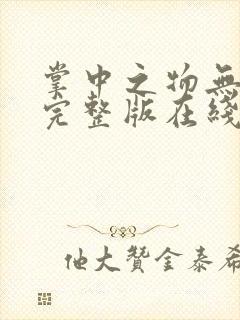 掌中之物無
完整版在綫
他大贊金泰希